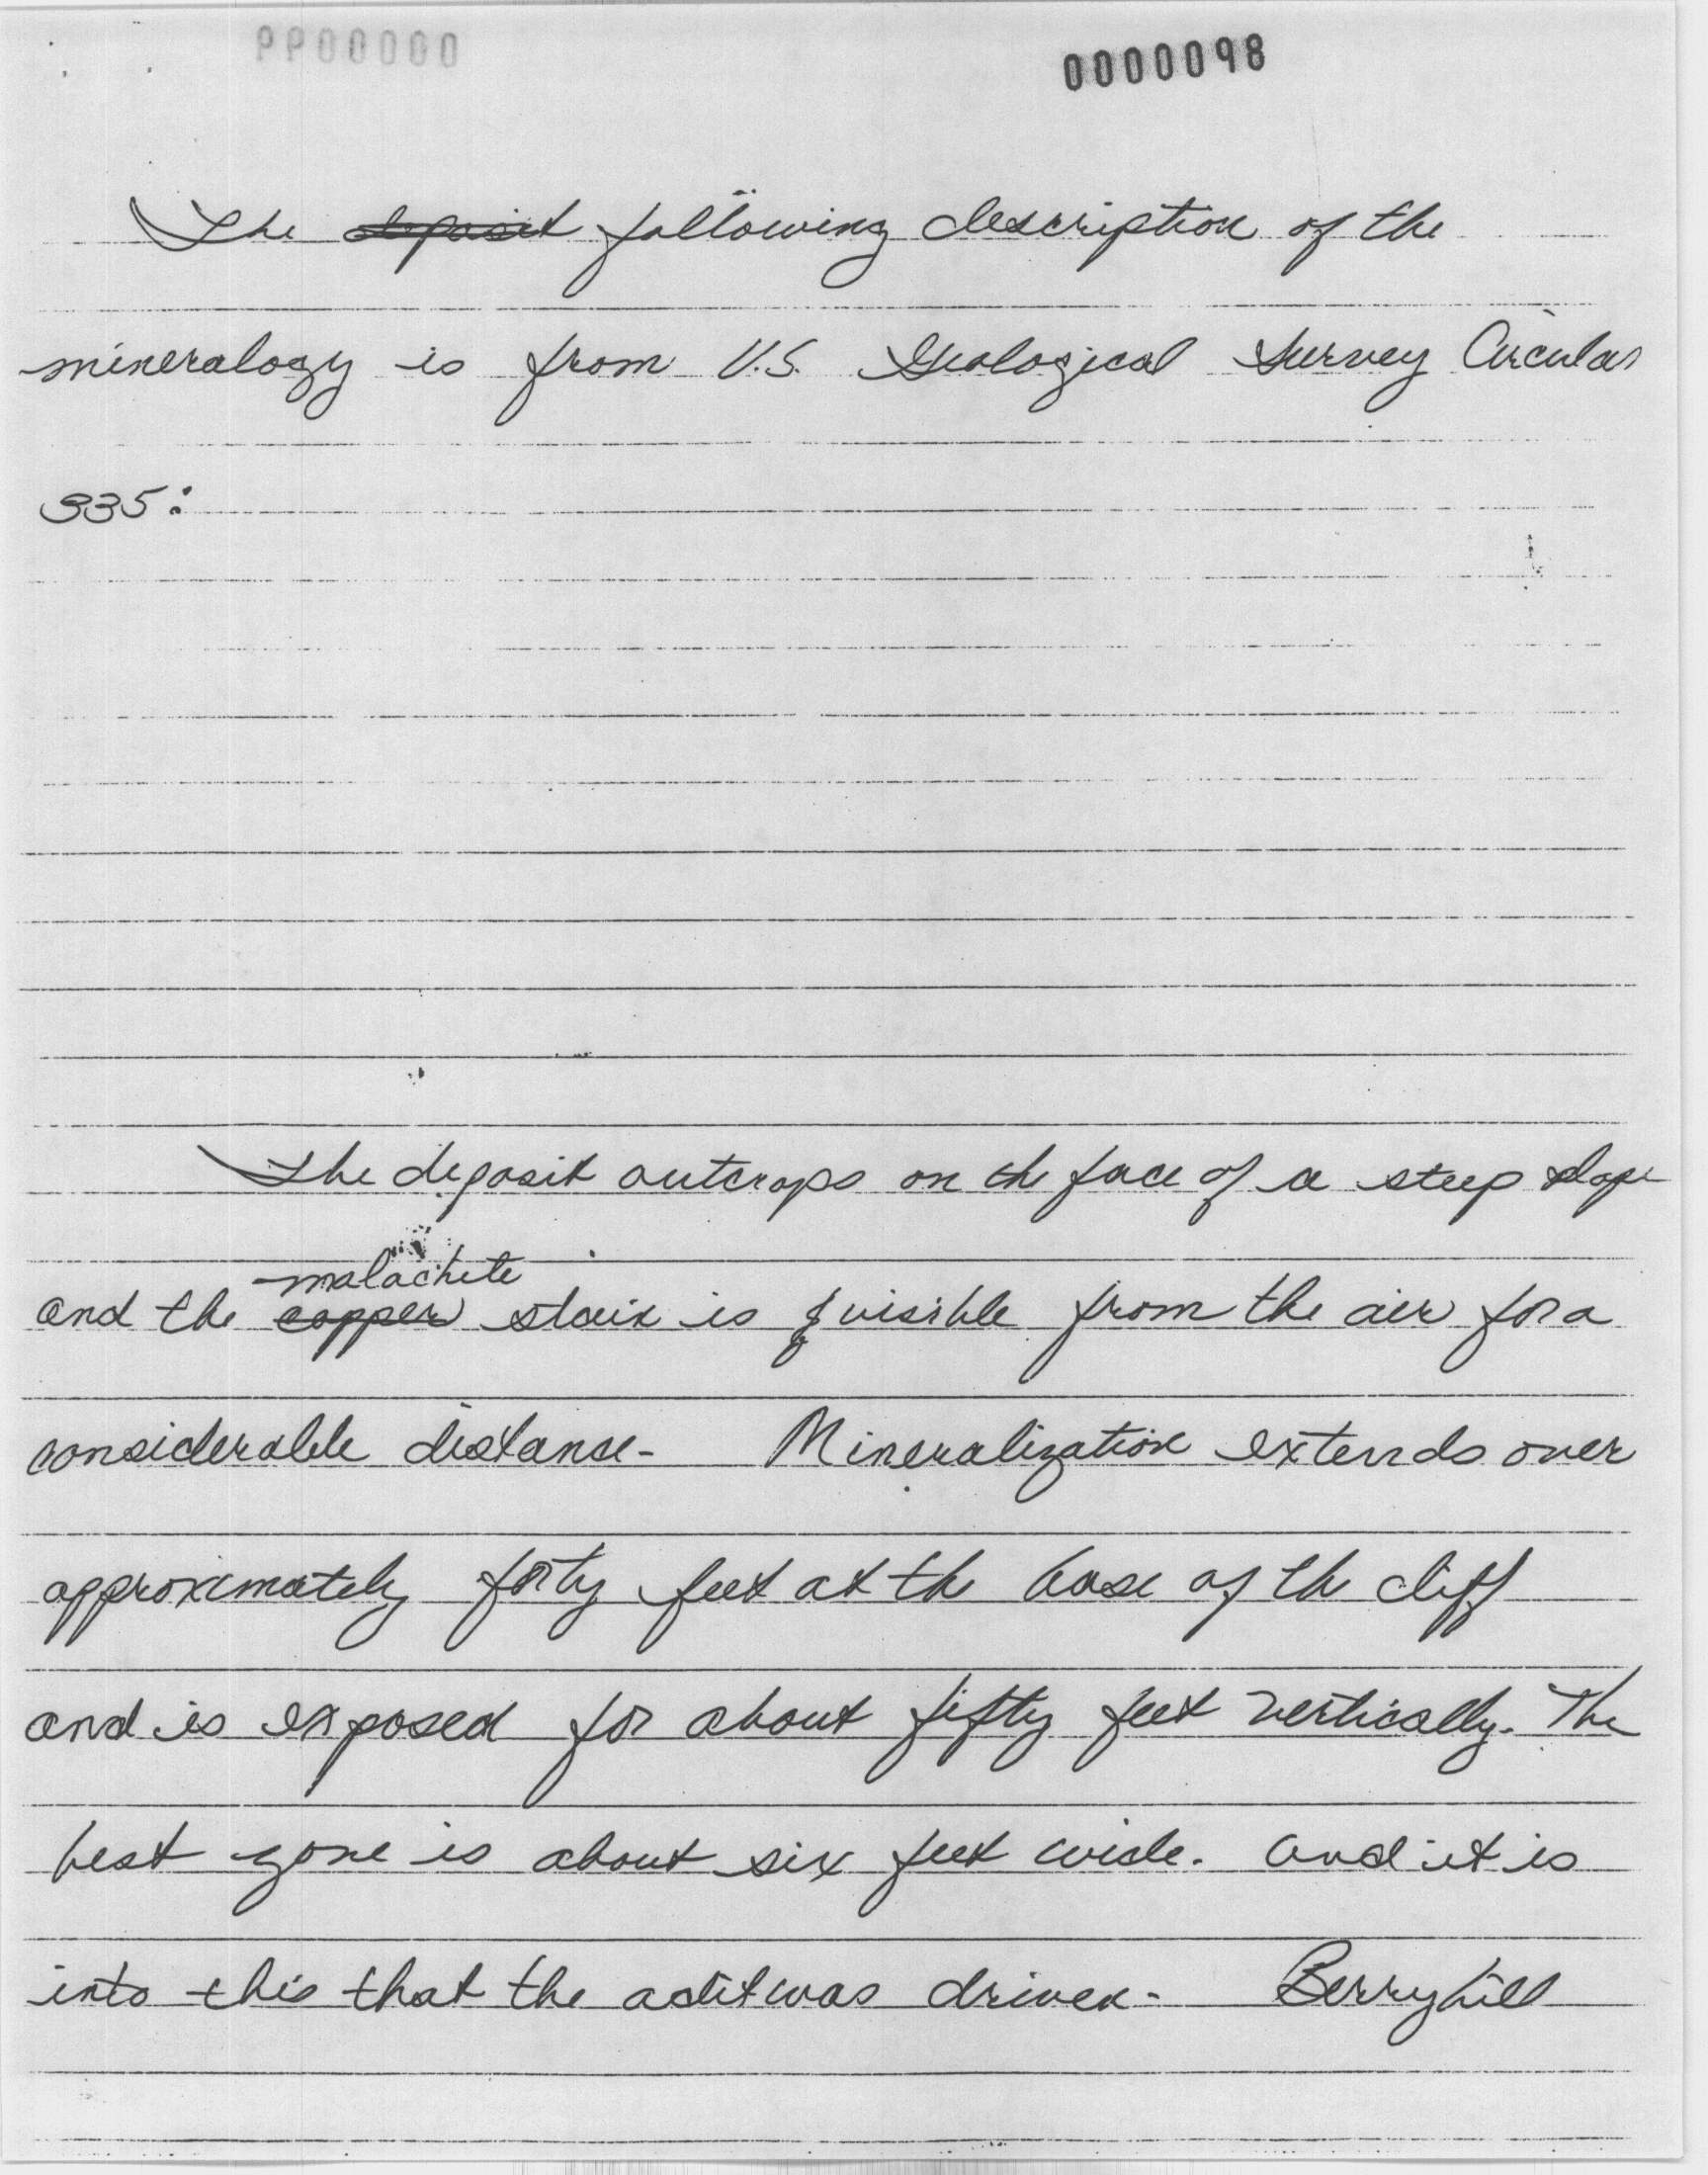 0000098
The deposit following description of the
mineralogy is from U.S. Geological Survey Circular
335:
The deposit outcrops on the face of a steep slope
malachite
and the copper stain is visible from the air for a
considerable distance. Mineralization extends over
approximately forty feet at the base of the cliff
and is exposed for about fifty feet vertically. The
best zone is about six feet wide. and it is
into this that the adit was driven. Berryhill